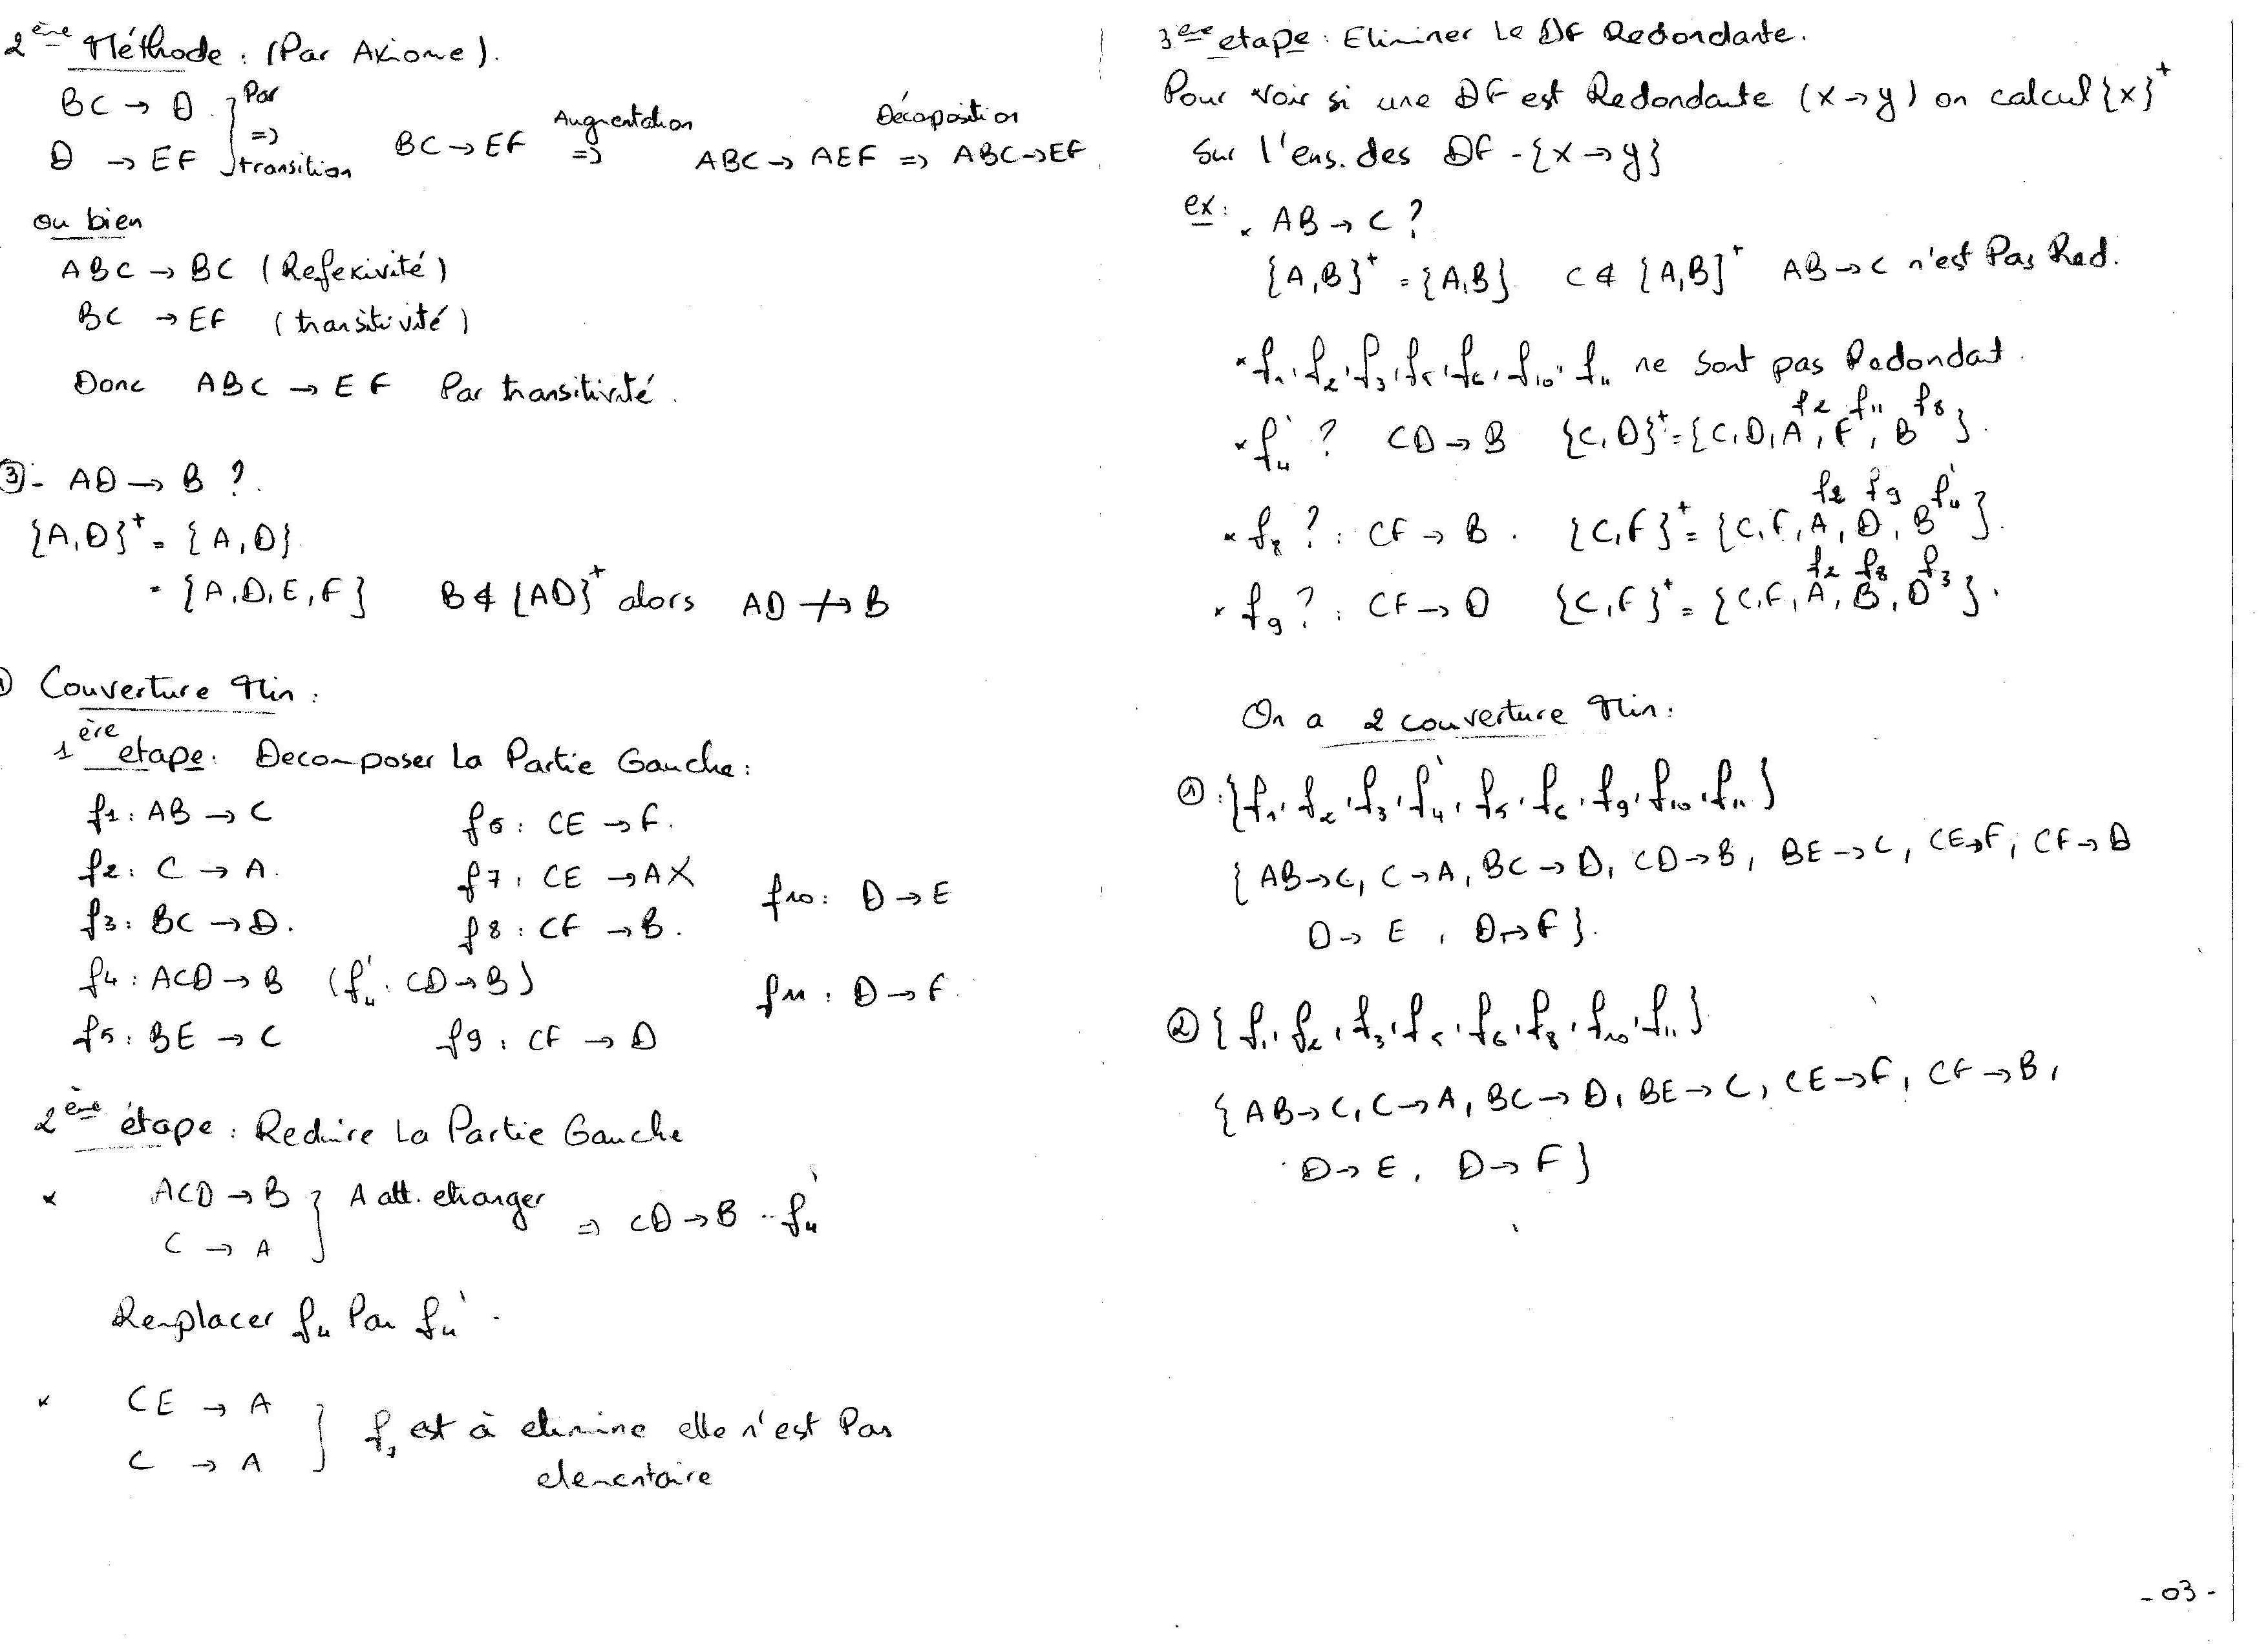 2ème Méthode : (Par Axiome).
BC → D } Par
D → EF } => transition BC → EF Augmentation => ABC → AEF Décoposition => ABC → EF
ou bien
ABC → BC (Refexivité)
BC → EF (transitivité)
Donc ABC → EF Par transitivité.
③- AD → B ?.
{A,D}⁺ = {A,D}
= {A,D,E,F} B ∉ {AD}⁺ alors AD ↛ B
① Couverture Min :
1ère etape : Decomposer La Partie Gauche :
f1 : AB → C f6 : CE → F.
f2 : C → A. f7 : CE → A X f10 : D → E
f3 : BC → D. f8 : CF → B.
f4 : ACD → B (f'4 : CD → B) f11 : D → F.
f5 : BE → C f9 : CF → D
2ème étape : Reduire La Partie Gauche
× ACD → B } A att. etranger => CD → B .. f'4
C → A
Remplacer f4 Par f'4 .
× CE → A } f7 est à elimine elle n'est Pas
C → A elementaire
3ere etape : Eliminer Le DF Redondante.
Pour voir si une DF est Redondante (x → y) on calcul {x}⁺
Sur l'ens. des DF - {x → y}
ex : × AB → C ?
{A,B}⁺ = {A,B} C ∉ {A,B}⁺ AB → C n'est Pas Red.
× f1, f2, f3, f5, f6, f10, f11 ne sont pas Redondant.
× f'4 ? CD → B {C,D}⁺ = {C, D, A f2, F f11, B f8}.
× f8 ? : CF → B . {C,F}⁺ = {C, F, A f2, D f9, B f'4}.
× f9 ? : CF → D {C,F}⁺ = {C, F, A f2, B f8, D f3}.
On a 2 couverture Min :
① : {f1, f2, f3, f'4, f5, f6, f9, f10, f11}
{AB → C, C → A, BC → D, CD → B, BE → C, CE → F, CF → D
D → E , D → F}.
② {f1, f2, f3, f5, f6, f8, f10, f11}
{AB → C, C → A, BC → D, BE → C, CE → F, CF → B,
D → E, D → F}
- 03 -